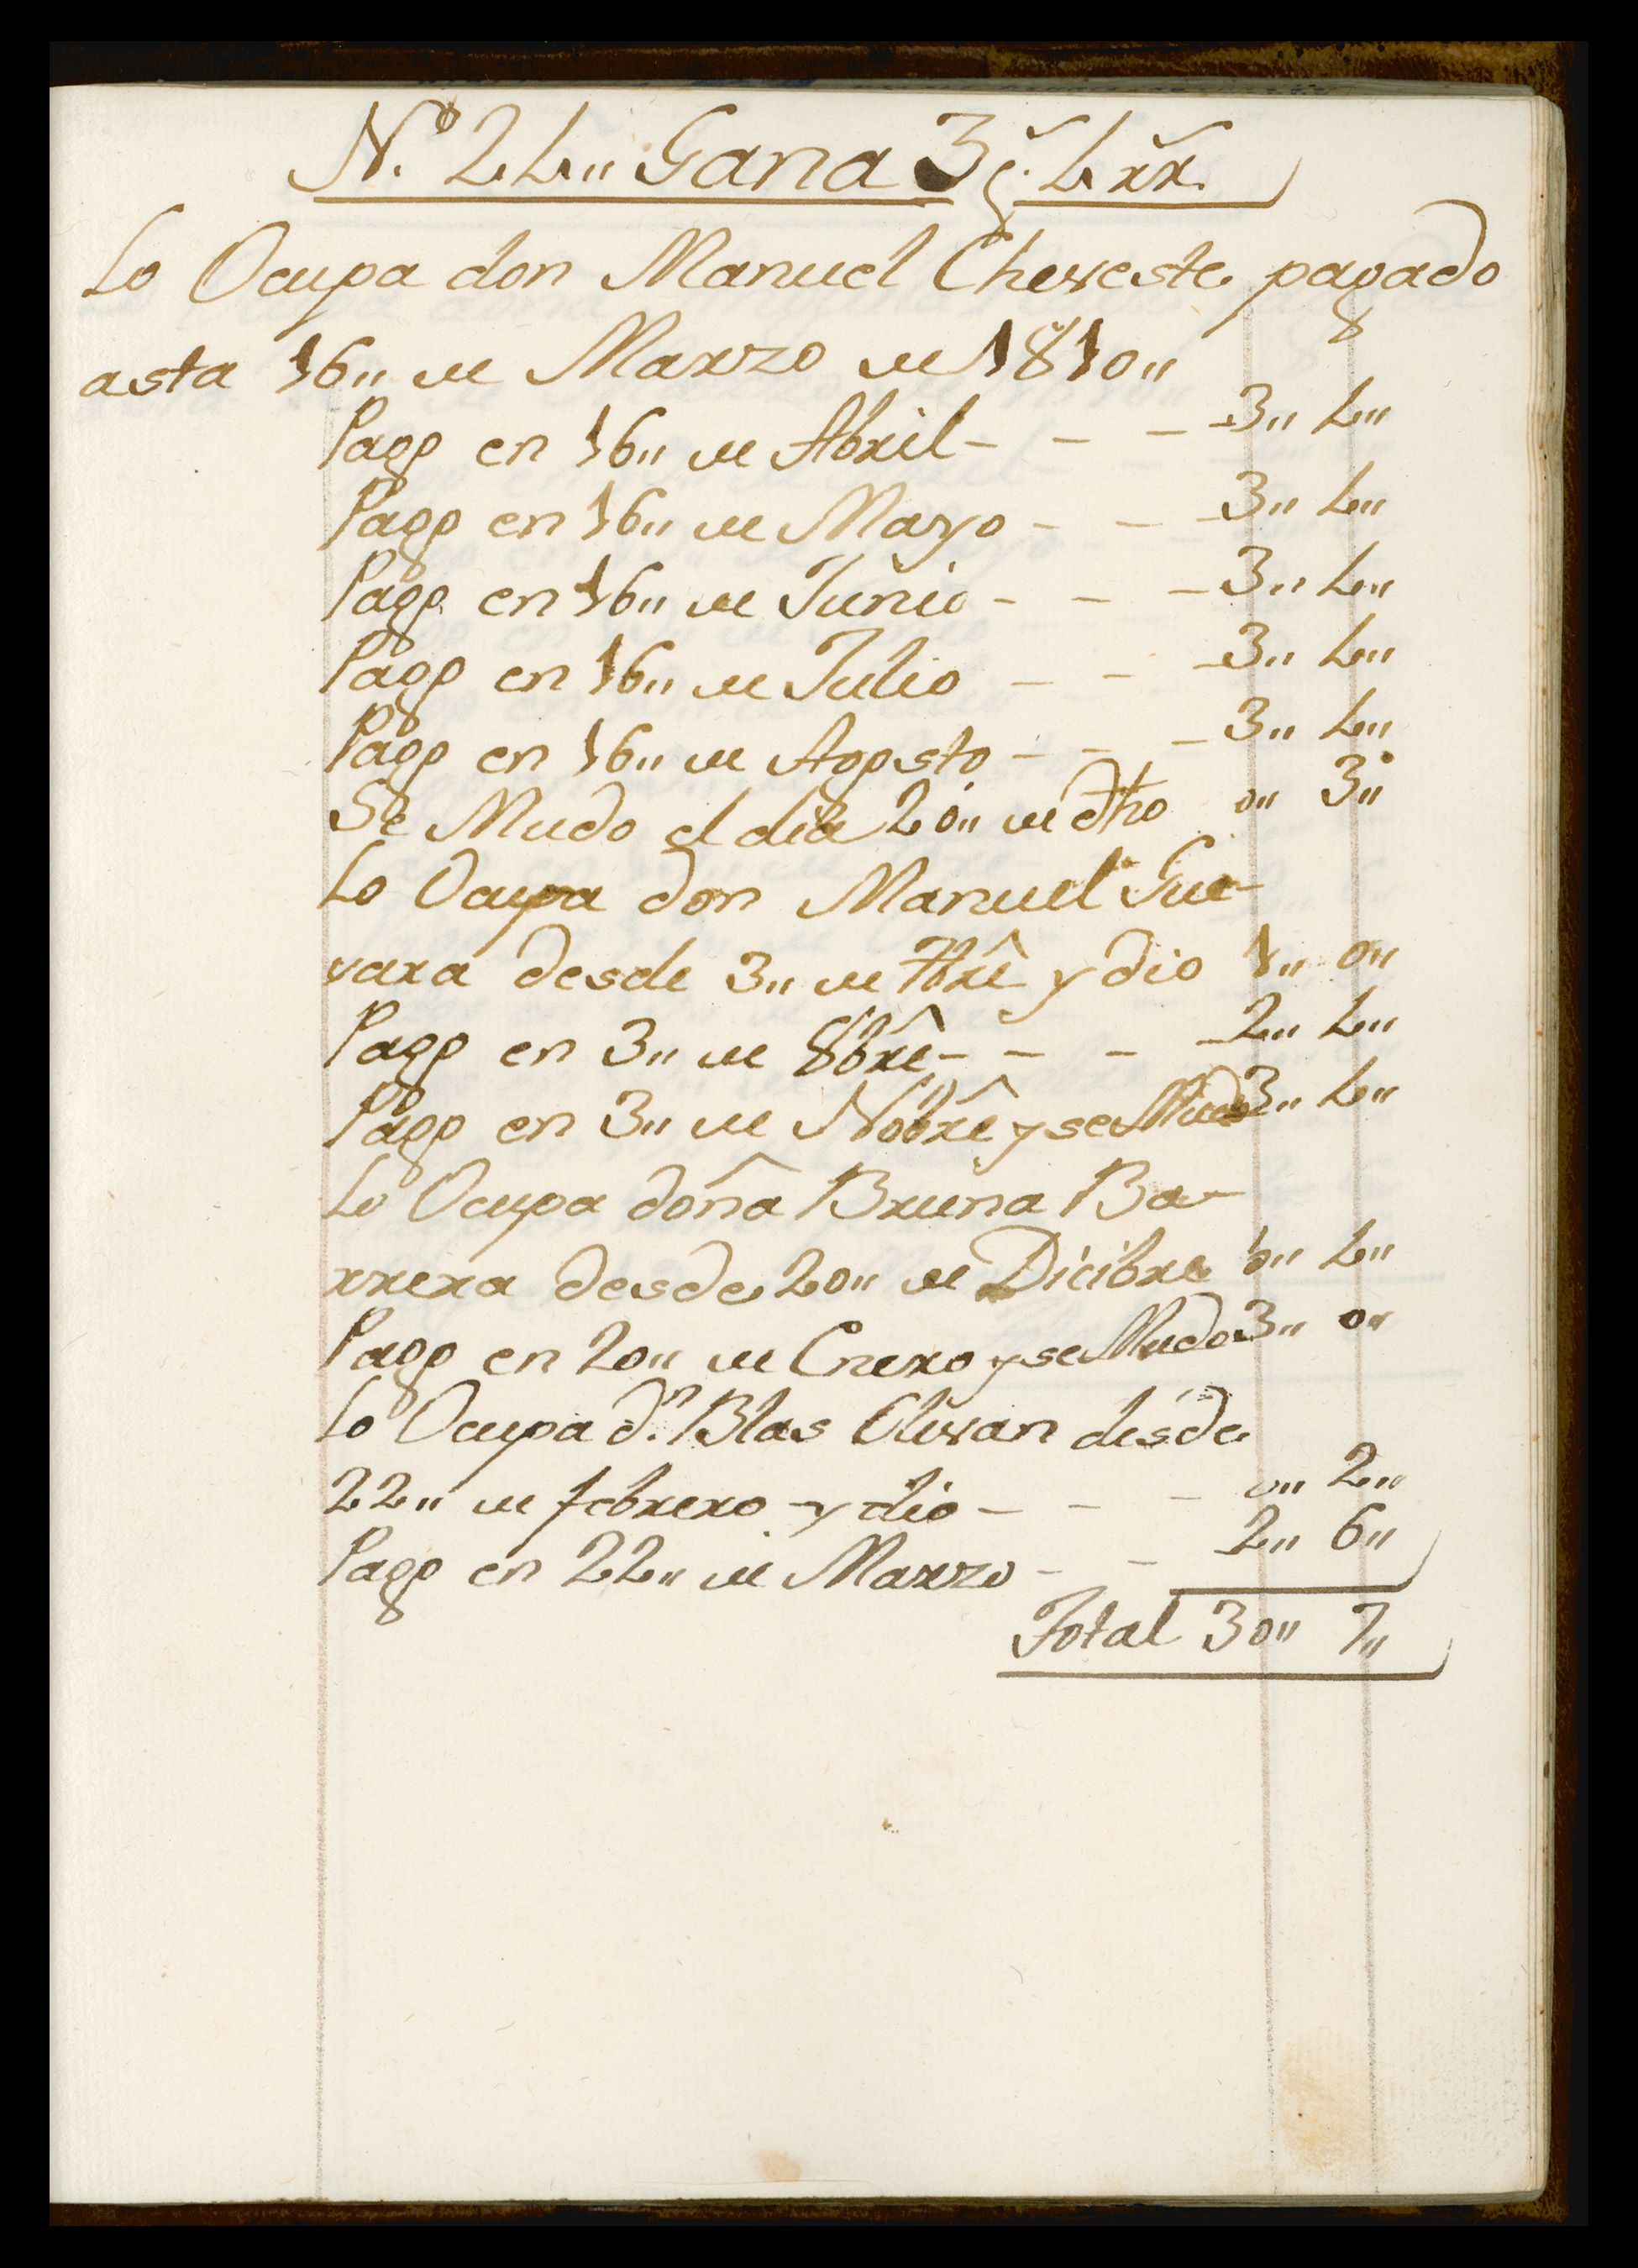 N.º 24,, Gana 3 p.s 4 rr.
Lo Ocupa don Manuel Cheveste pagado
asta 16,, de Marzo de 1810,,
Pago en 16,, de Abril - - - 3,, 4,,
Pago en 16,, de Mayo - - - 3,, 4,,
Pago en 16,, de Junio - - - 3,, 4,,
Pago en 16,, de Julio - - - 3,, 4,,
Pago en 16,, de Agosto - - - 3,, 4,,
Se Mudo el dia 20,, de dho 0,, 3,,
Lo Ocupa don Manuel Gue-
vara desde 3,, de 7bre y dio 1,, 0,,
Pago en 3,, de 8bre - - - 2,, 4,,
Pago en 3,, de Nobre y se Mudo 3,, 4,,
Lo Ocupa doña Bruna Ba-
rrera desde 20,, de Dicibre 0,, 4,,
Pago en 20,, de Enero y se Mudo 3,, 0,,
Lo Ocupa d.n Blas Olivan desde
22,, de febrero y dio - - - 0,, 2,,
Pago en 22,, de Marzo - - 2,, 6,,
Total 30,, 7,,